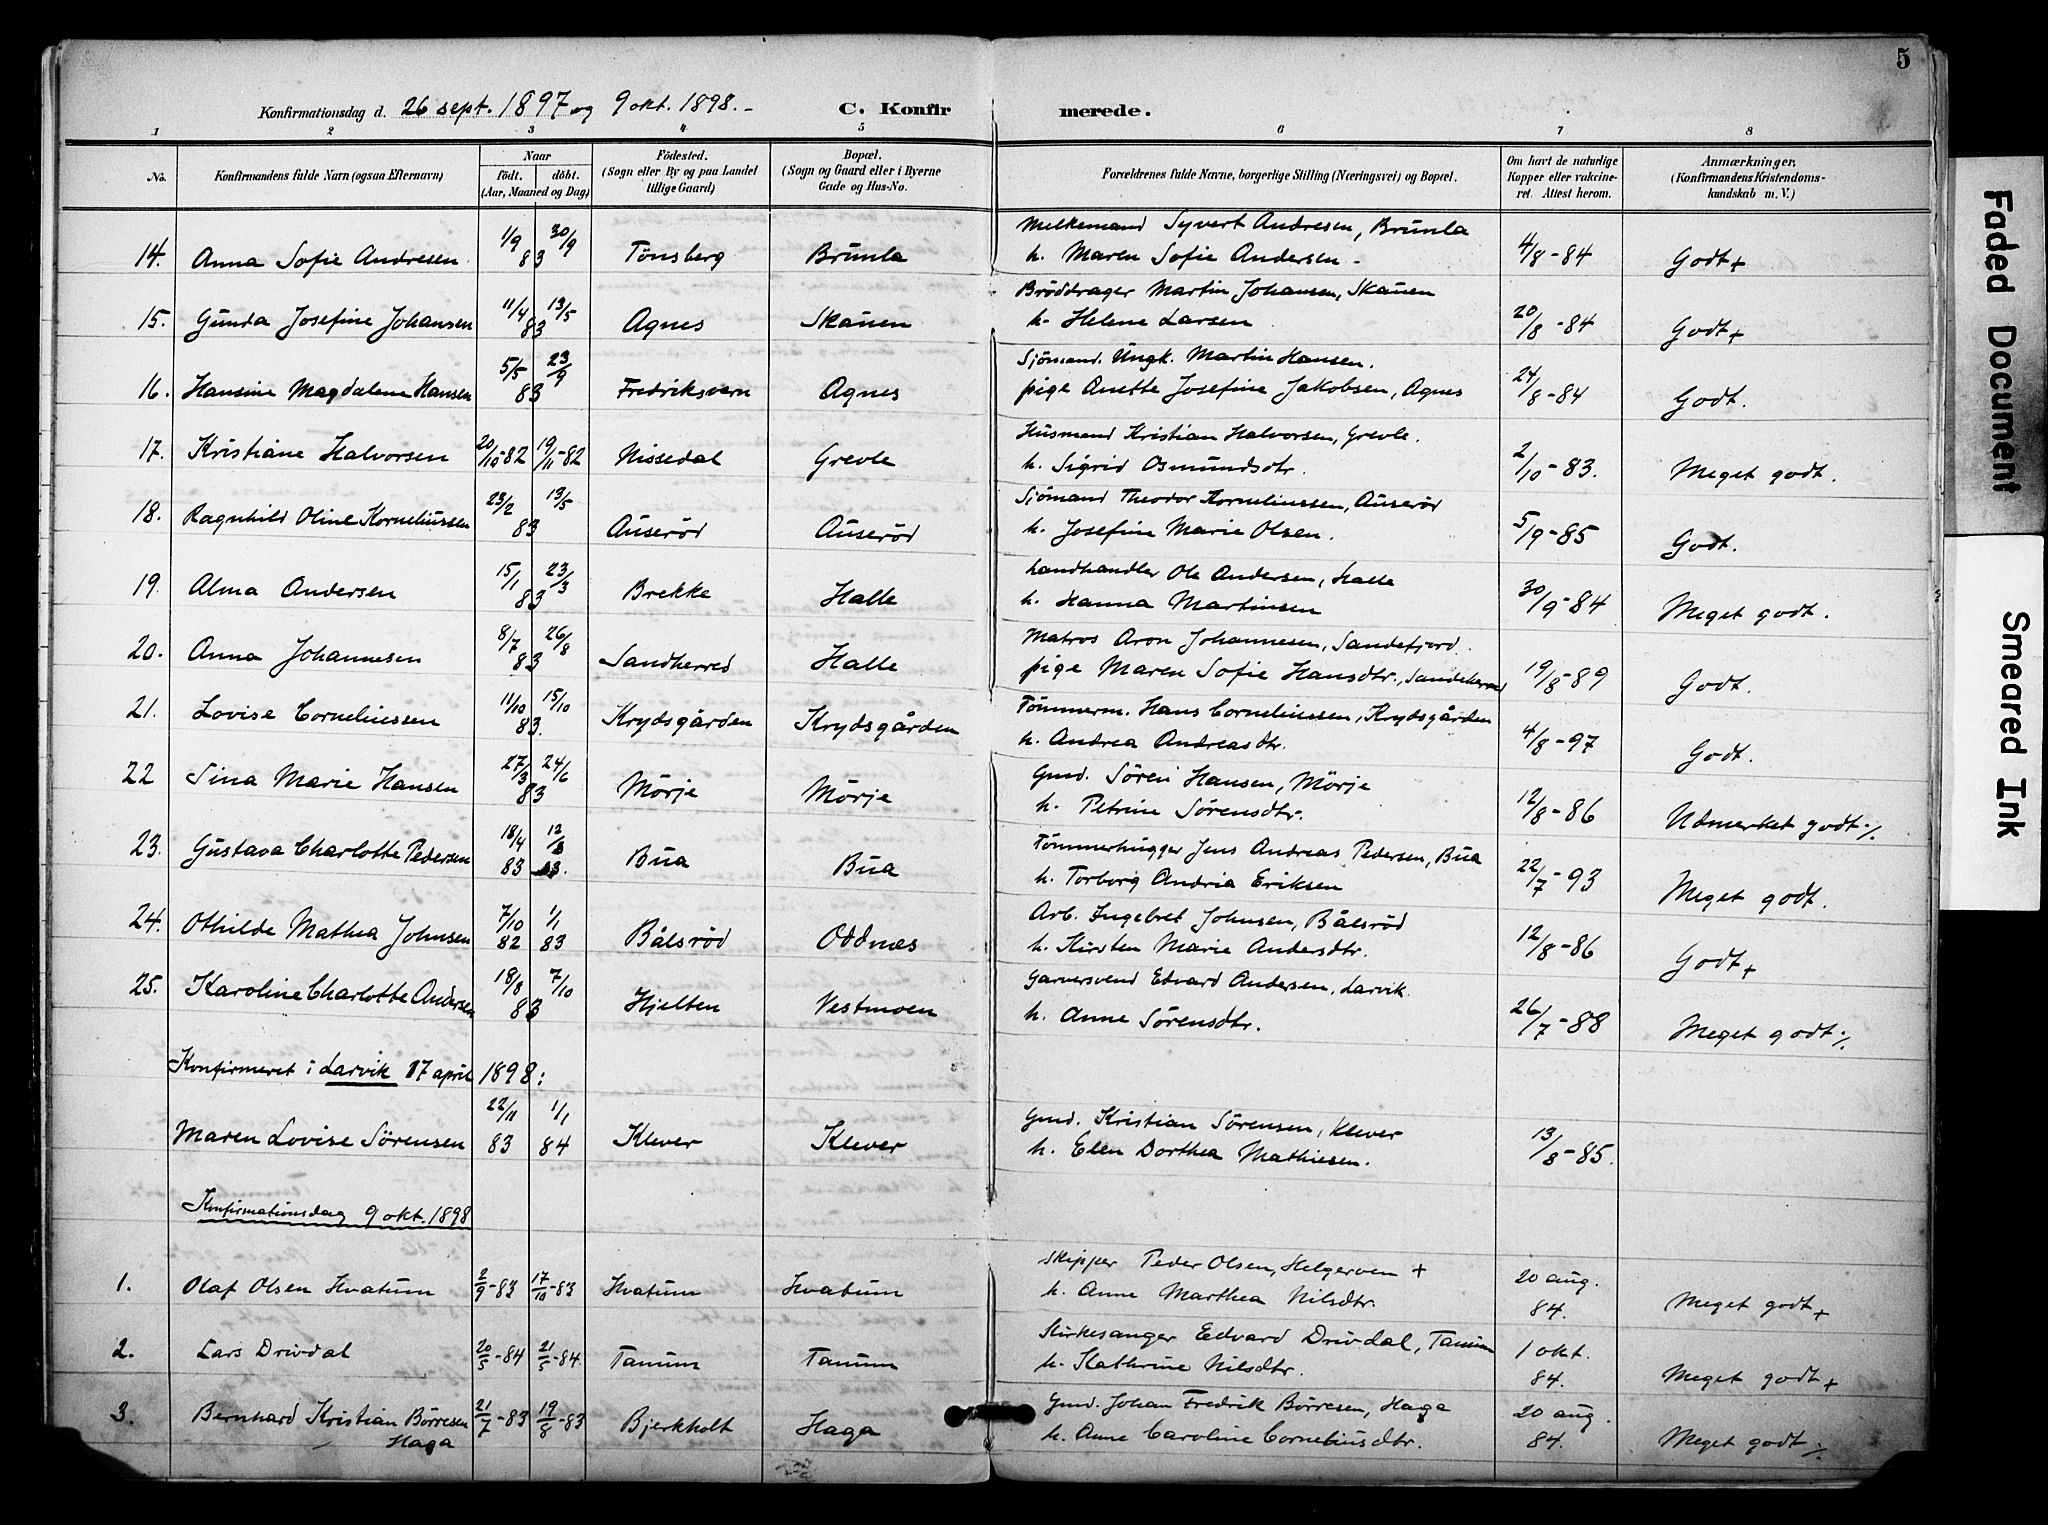 5
Konfirmationsdag d. 26 sept. 1897 og 9 okt. 1898. -   C. Konfirmerede.
1 2 3 4 5 6 7 8
No. | Konfirmandens fulde Navn (ogsaa Efternavn) | Naar født. døbt. (Aar, Maaned og Dag) | Födested. (Sogn eller By og paa Landet tillige Gaard) | Bopæl. (Sogn og Gaard eller i Byerne Gade og Hus-No. | Forældrenes fulde Navne, borgerlige Stilling (Næringsvei) og Bopæl. | Om havt de naturlige Kopper eller vakcineret. Attest herom. | Anmærkninger, (Konfirmandens Kristendomskundskab m. V.)
14. Anna Sofie Andresen. 1/9 30/9 83 Tönsberg Brunla Melkemand Syvert Andresen, Brunla
h. Maren Sofie Andersen - 4/8-84 Godt+
15. Gunda Josefine Johansen 11/4 13/5 83 Agnes Skauen Brøddrager Martin Johansen, Skauen
h. Helene Larsen 20/8-84 Godt+
16. Hansine Magdalene Hansen 5/5 23/9 83 Fredriksvern Agnes Sjömand. Ungk. Martin Hansen.
pige Anette Josefine Jakobsen, Agnes 24/8-84 Godt.
17. Kristiane Halvorsen 20/10-82 19/11-82 Nissedal Grevle Husmand Kristian Halvorsen, Grevle.
h. Sigrid Osmundsdtr. 2/10-83. Meget godt.
18. Ragnhild Oline Korneliussen 23/2 13/5 83 Auserød Auserød Sjömand Theodor Korneliussen, Auserød
h. Josefine Marie Olsen. 5/9-85 Godt.
19. Alma Andersen 15/1 23/3 83 Brekke Halle Landhandler Ole Andersen, Halle
h. Hanna Martinsen 30/9-84 Meget godt.
20. Anna Johannesen 8/7 26/8 83 Sandherred Halle Matros Aron Johannesen, Sandefjord.
pige Maren Sofie Hansdtr., Sandeherred 19/8-89 Godt.
21. Lovise Corneliussen 11/10 15/10 83. Krydsgården Krydsgården Tömmerm. Hans Corneliussen, Krydsgården
h. Andrea Andreasdtr. 4/8-97 Godt.
22 Sina Marie Hansen 27/3 24/6 83 Mörje Mörje Gmd. Sören Hansen, Mörje
h. Petrine Sørensdtr. 12/8-86 Udmerket godt ./.
23. Gustava Charlotte Pedersen 18/4 83 Bua Bua Tömmerhugger Jens Andreas Pedersen, Bua
h. Torborg Andria Eriksen 22/7-93 Meget godt.
24. Othilde Mathea Johnsen 7/10 82 1/1 83 Bålsrød Oddnæs Arb. Ingebret Johnsen, Bålsrød
h. Kirsten Marie Andersdtr. 12/8-86 Godt+
25. Karoline Charlotte Andersen 18/8 7/10 83 Hjelten Vestmoen Garversvend Edvard Andersen, Larvik.
h. Anne Sørensdtr. 26/7-88 Meget godt ./.
Konfirmeret i Larvik 17 april 1898:
Maren Lovise Sörensen 22/11 83 1/1 84 Klever Klever Gmd. Kristian Sörensen, Klever
h. Elen Dorthea Mathiesen. 13/8-85.
Konfirmationsdag 9 okt. 1898
1. Olaf Olsen Hvatum 2/9-83 17/10-83 Hvatum Hvatum Skipper Peder Olsen, Helgeroen +
h. Anne Marthea Nilsdtr. 20 aug. 84. Meget godt+
2. Lars Drivdal 20/5-84 21/5-84. Tanum Tanum Kirkesanger Edvard Drivdal, Tanum
h. Kathrine Nilsdtr. 1 okt. 84. Meget godt+
3. Bernhard Kristian Börresen 21/7-83 19/8-83 Bjerkholt Haga Gmd. Johan Fredrik Börresen, Haga
Haga h. Anne Caroline Corneliusdtr. 20 aug. 84. Meget godt ./.
Faded Document
Smeared Ink